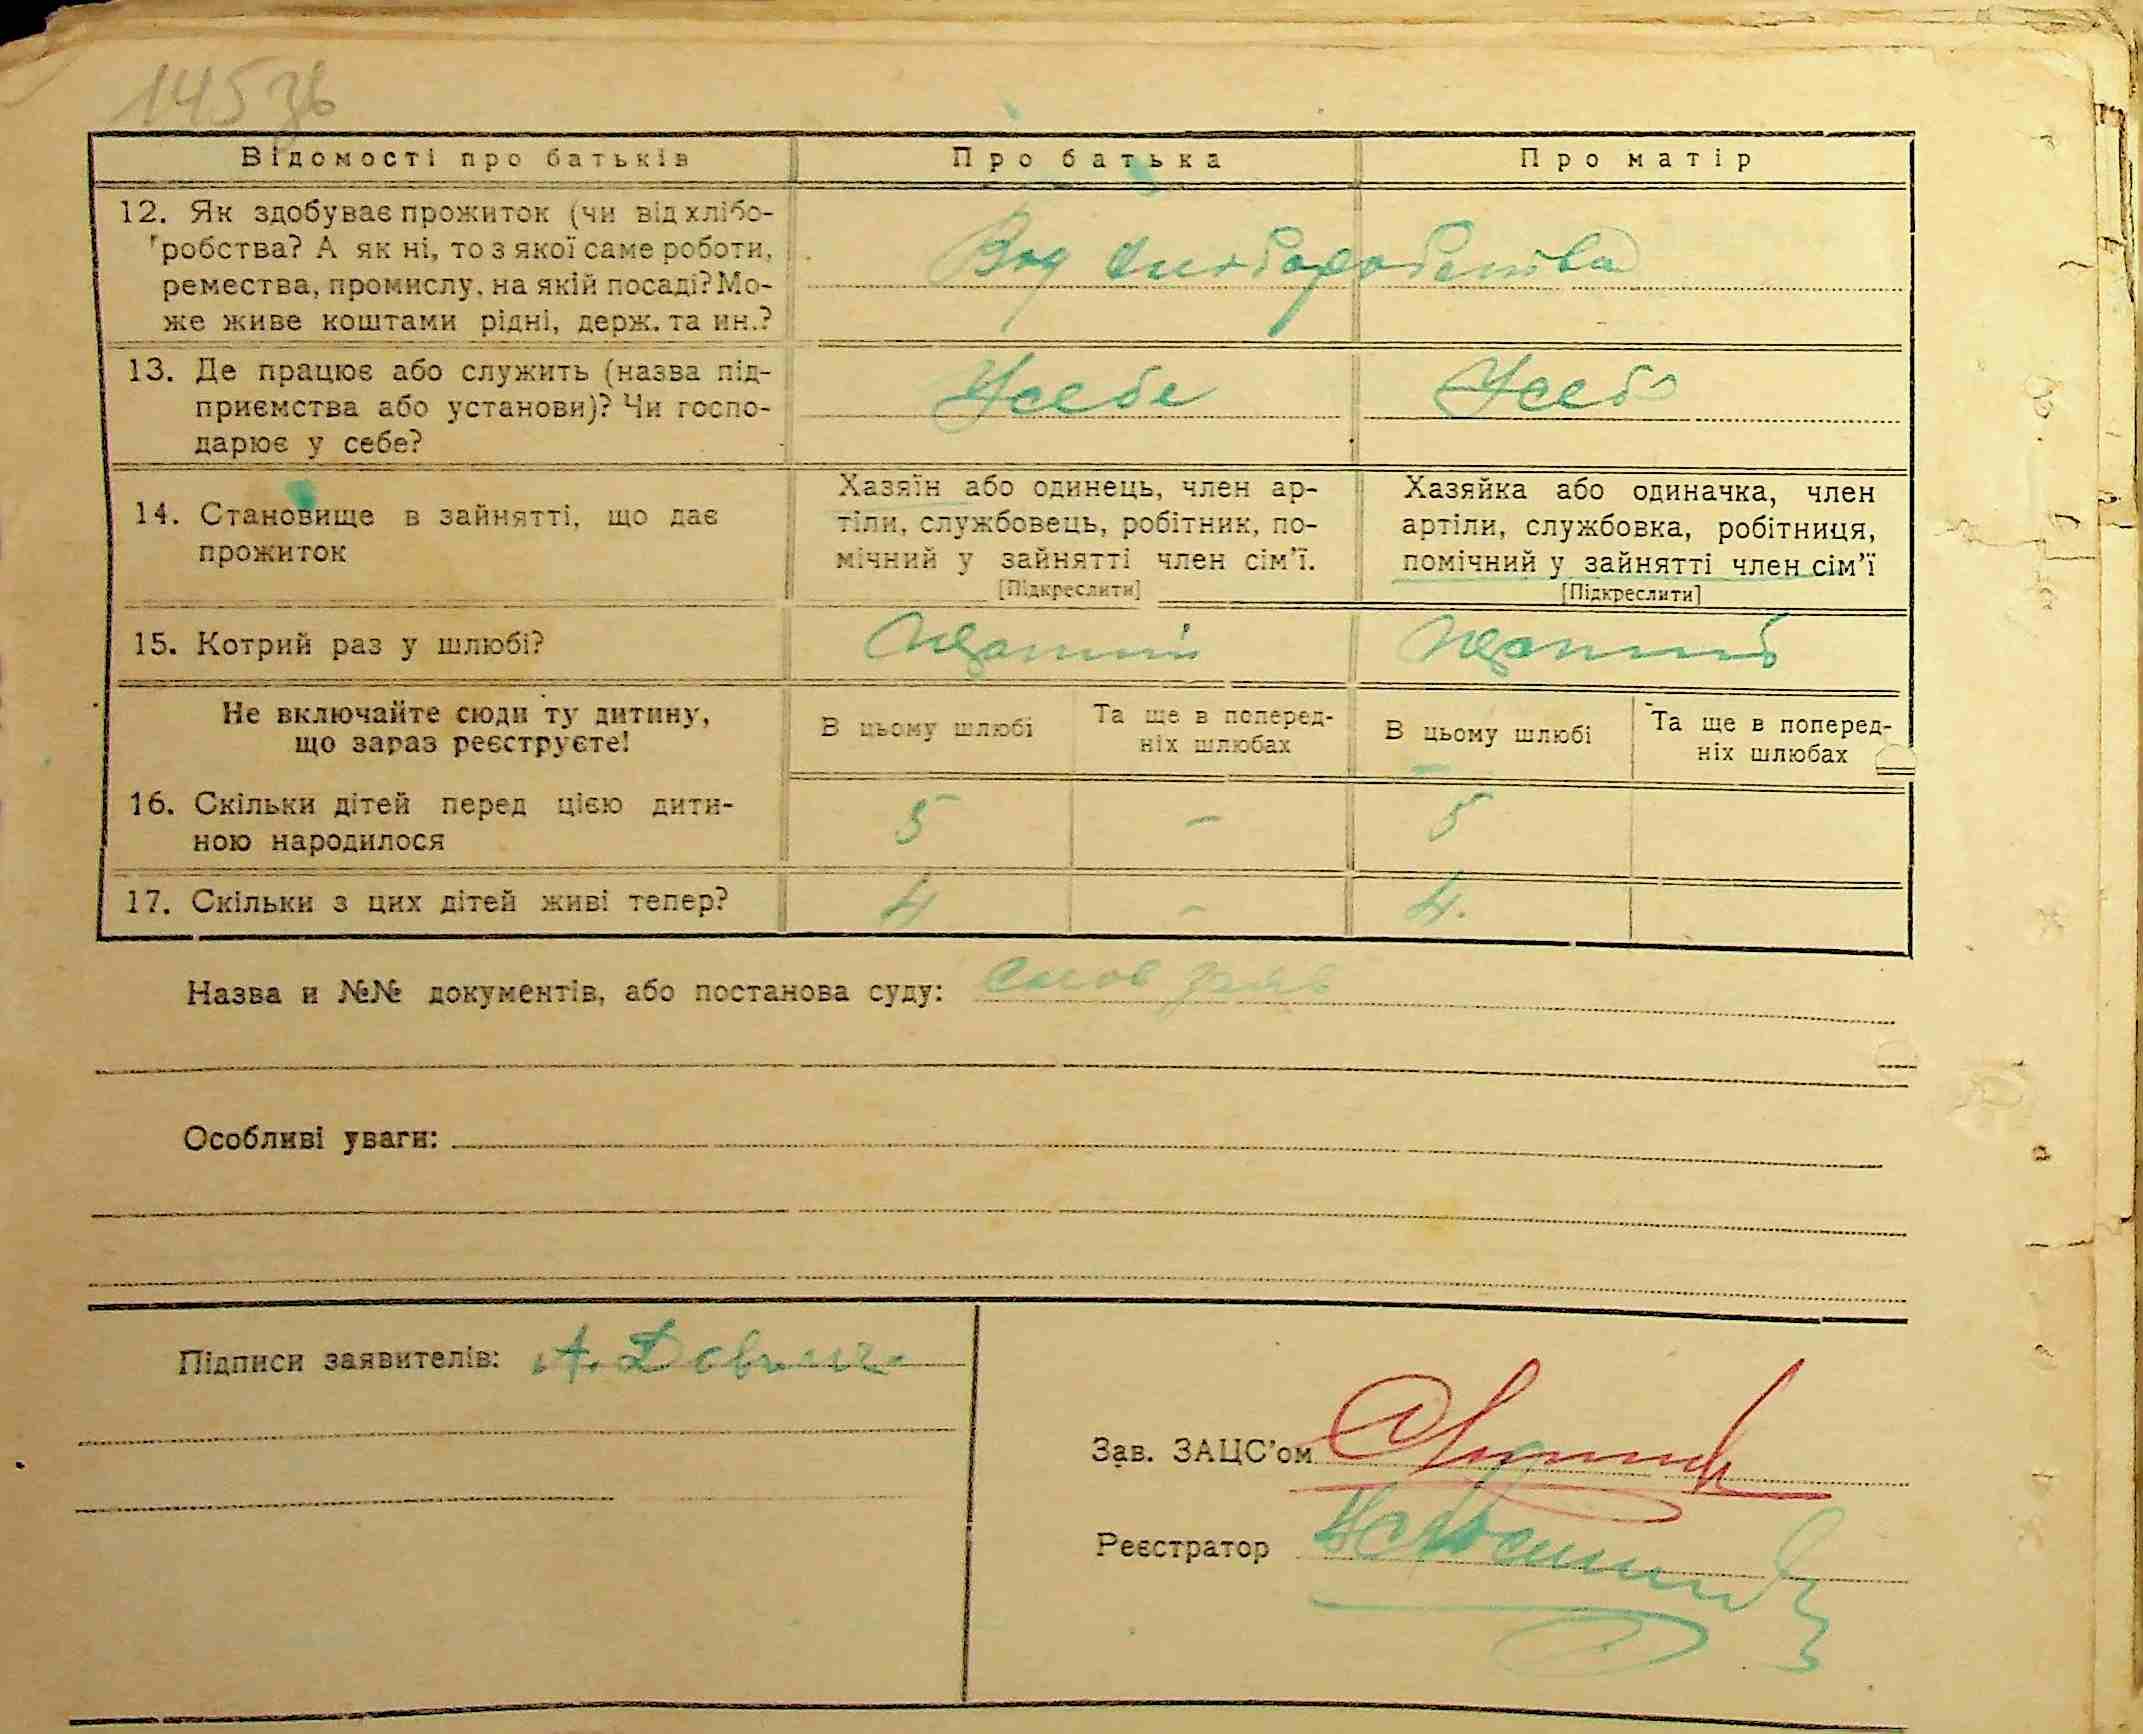 145 зв
Відомості про батьків
Про батька
Про матір
12. Як здобуває прожиток (чи від хлібо-
робства? А як ні, то з якої саме роботи,
ремества, промислу, на якій посаді? Мо-
же живе коштами рідні, держ. та ин.?
Вид хлібаробства
13. Де працює або служить (назва під-
приємства або установи)? Чи госпо-
дарює у себе?
Усебе
Усебе
14. Становище в зайнятті, що дає
прожиток
Хазяїн або одинець, член ар-
тіли, службовець, робітник, по-
мічний у зайнятті член сім'ї.
[Підкреслити]
Хазяйка або одиначка, член
артіли, службовка, робітниця,
помічний у зайнятті член сім'ї
[Підкреслити]
15. Котрий раз у шлюбі?
Не включайте сюди ту дитину,
що зараз реєструєте!
В цьому шлюбі
Та ще в поперед-
ніх шлюбах
В цьому шлюбі
Та ще в поперед-
ніх шлюбах
16. Скільки дітей перед цією дити-
ною народилося
5 – 5
17. Скільки з цих дітей живі тепер?
4 – 4.
Назва и №№ документів, або постанова суду:
Особливі уваги:
Підписи заявителів: А.
Зав. ЗАЦС'ом
Реєстратор